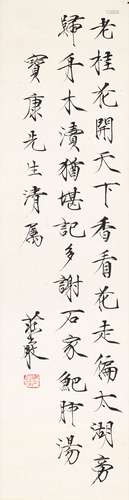 老桂花開天下香看花走徧太湖旁
歸舟木瀆猶堪記多謝石家鲃肺湯
寶康先生清屬
莊嚴